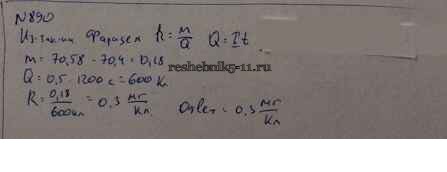 N890
Из закона Фарадея k = m/Q Q = It
m = 70,58 - 70,4 = 0,18
reshebnik5-11.ru
Q = 0,5 · 1200 с = 600 Кл
k = 0,18/600кл = 0,3 мг/Кл Ответ = 0,3 мг/Кл